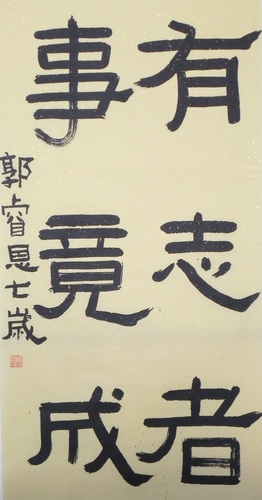 有志者
事竟成
郭睿思七歲